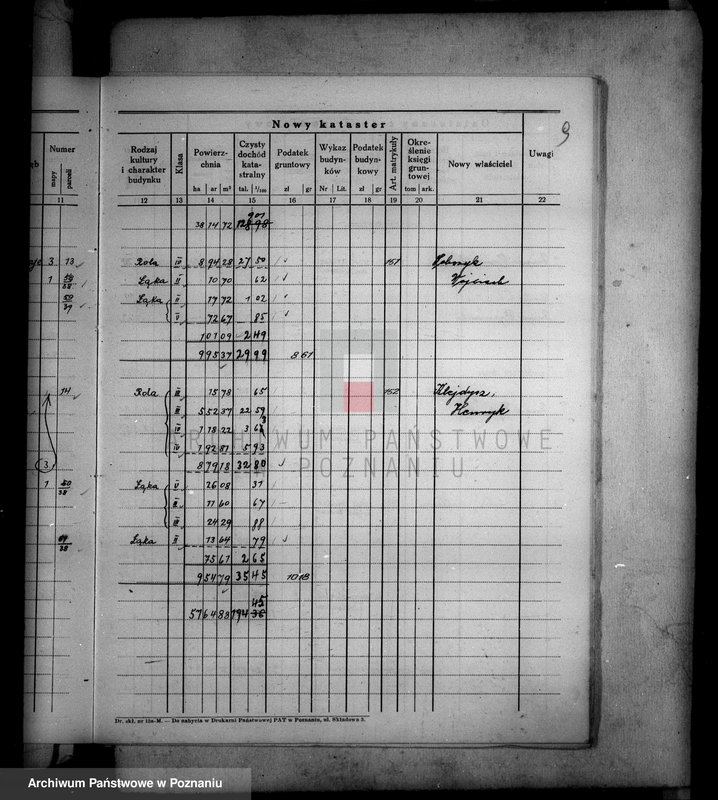 9
Nowy kataster
Numer
mapy
parceli
Rodzaj kultury i charakter budynku
Klasa
Powierzchnia
ha ar m²
Czysty dochód katastralny
tal. 1/100
Podatek gruntowy
zł gr
Wykaz budynków
Nr Lit.
Podatek budynkowy
zł gr
Art. matrykuły
Określenie księgi gruntowej
tom ark.
Nowy właściciel
Uwagi
11 12 13 14 15 16 17 18 19 20 21 22
38 14 72
3 13 Rola IV 8 94 28 27 50 151
1 Łąka II 10 70 62 Wojciech
50/39 Łąka II 17 72 1 02
V 72 67 85
1 01 09 2 49
9 95 37 29 99 8 61
14 Rola III 15 78 65 152 Klejdysz,
III 5 52 37 22 59 Henryk
IV 1 18 22
IV 1 92 81 5 93
3 8 79 18 32 80
1 50/38 Łąka V 26 08 31
II 11 60 67
III 24 29 88
Łąka II 13 64 79
75 61 2 65
9 54 79 35 45 10 18
45
57 64 88 194 36
ARCHIWUM PAŃSTWOWE
W POZNANIU
Dr. skł. nr 12a-M. — Do nabycia w Drukarni Państwowej PAT w Poznaniu, ul. Składowa 3.
Archiwum Państwowe w Poznaniu